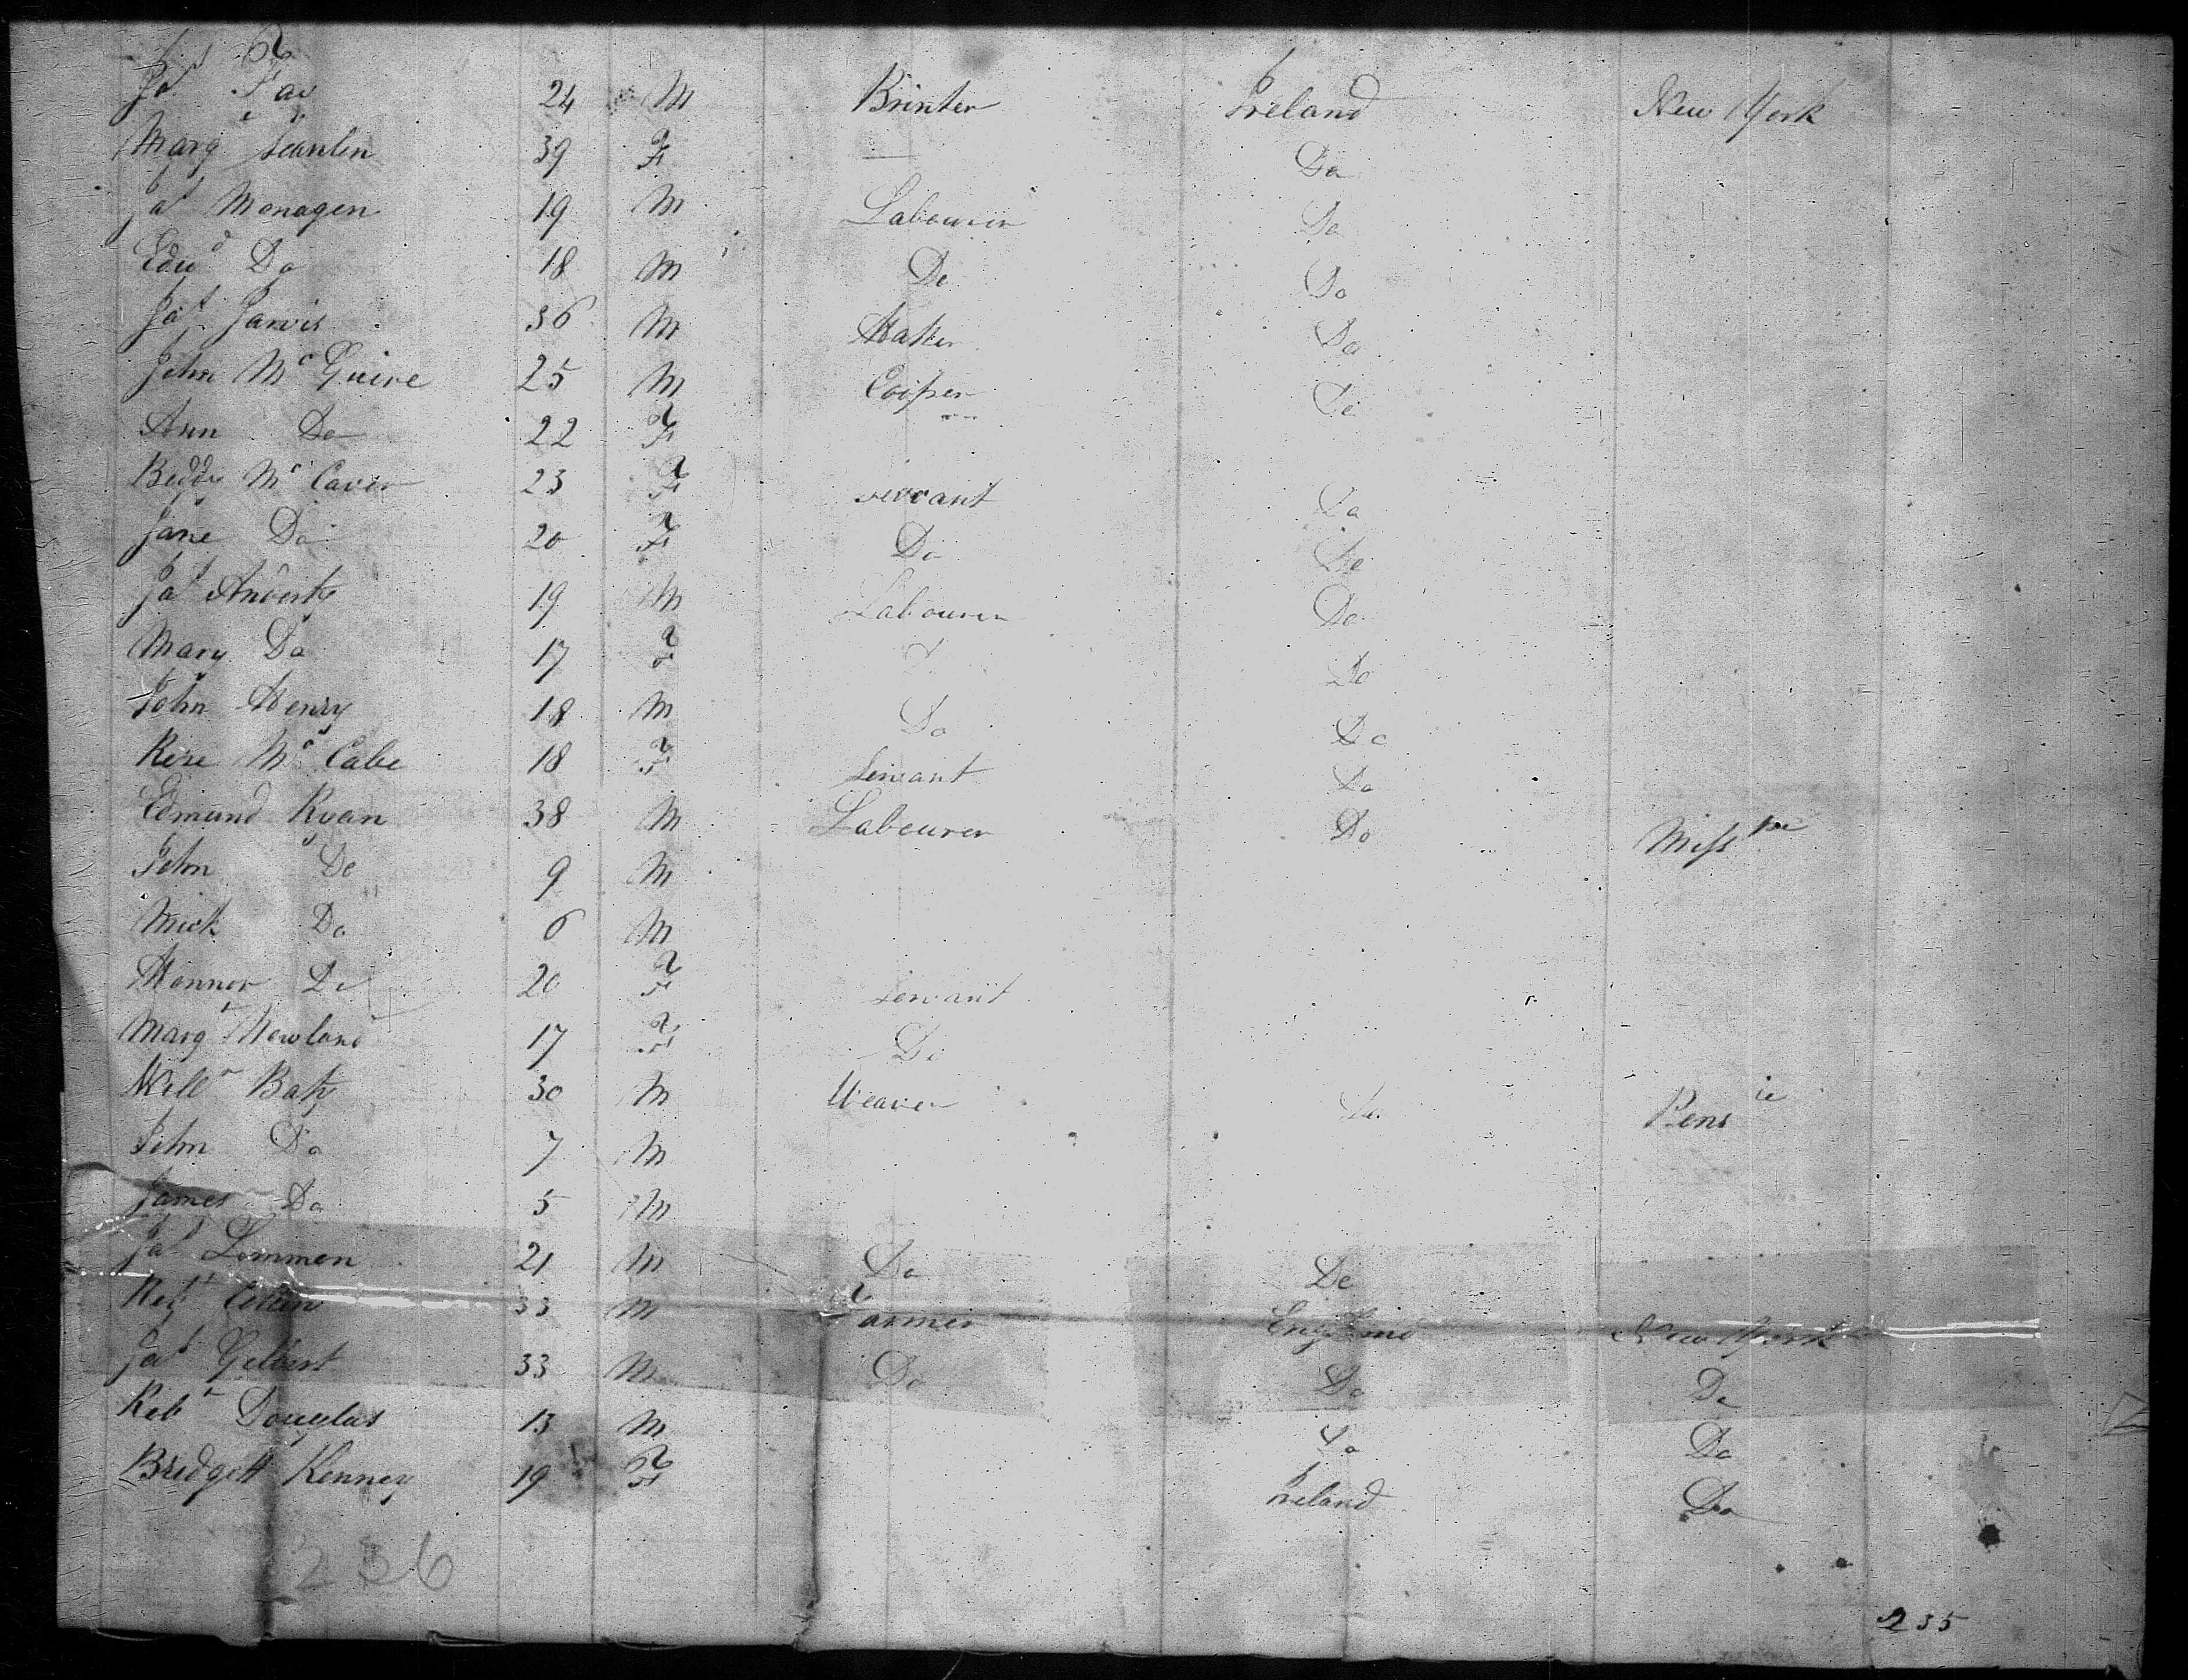 Jas Fav 24 M Printer Ireland New York
Margt Scanlin 39 F — Do
Jas Monagen 19 M Labourer Do
Edwd Do 18 M Do Do
Jas Jarvis 36 M Hatter Do
John McGuire 25 M Cooper Do
Ann Do 22 F
Biddy McCaver 23 F servant Do
Jane Do 20 F Do Do
Jas 19 M Labourer Do
Mary Do 17 F Do
John Henry 18 M Do Do
Rose McCabe 18 F Servant Do
Edmund Ryan 38 M Labourer Do Misspe
John Do 9 M
Mick Do 6 M
Honner Do 20 F Servant
Margt Newland 17 F Do
Willm Baty 30 M Weaver Do Pensie
John Do 7 M
James Do 5 M
Jas Lemmon 21 M Do Do
33 M Farmer England New York
Jas Gilbert 33 M Do Do Do
Robt Douglas 13 M Do Do
Bridgett Kenney 19 F Ireland Do
236
235